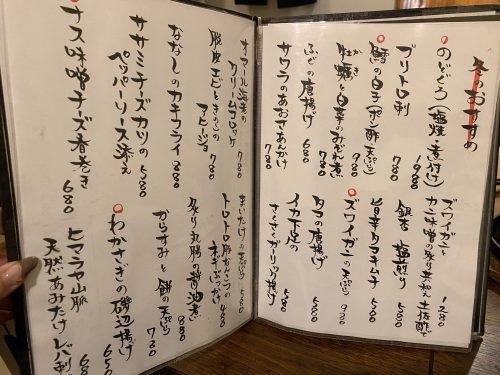 冬のおすすめ
のどぐろ(塩焼・煮付け)
980
ブリトロ刺
780
鱈の白子(ポン酢・天ぷら)
980
牡蠣と白菜のみぞれ煮
かき
780
ふぐの唐揚げ
680
サワラのあおさあんかけ
780
ズワイガニと
カニ味噌の炙り共和え 土佐酢で
1280
銀杏 塩煎り
580
旨辛タコキムチ
580
ズワイガニの天ぷら
980
タコの唐揚げ
580
イカ下足の
さくさくガーリック揚げ
580
オマール海老の
クリームコロッケ
780
脱皮エビときのこの
アヒージョ
780
ななしのカキフライ
880
ササミチーズカツの
ペッパーソース添え
580
ナス味噌チーズ春巻き
680
まいたけの天ぷら
580
トロトロ豚なんこつの
ネギぶっかけ
480
炙り丸腸の醤油煮
880
からすみと餅の天ぷら
780
わかさぎの磯辺揚げ
650
ヒマラヤ山脈
天然あみたけ レバ刺し
680